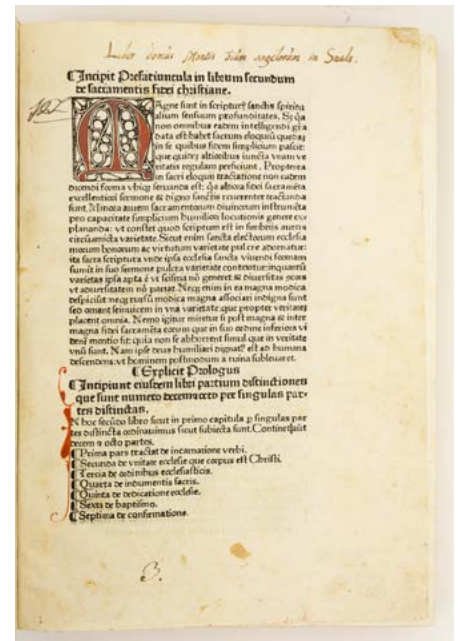 Liber domus Montis sanctorum angelorum in Snals.
¶Incipit Prefatiuncula in librum secundum
de sacramentis fidei christiane.
MAgne sunt in scripturis sanctis spiritu
alium sensuum profunditates. Sꝫ qa
non omnibus eadem intelligendi gra
data est habet sacrum eloquiū quedaꝫ
in se quibus fidem simplicium pascit:
que quideꝫ altioribus iuncta vnam ve
ritatis regulam perficiunt. Propterea
in sacri eloquii tractatione non eadem
dicendi forma vbiqꝫ seruanda est: qa altiora fidei sacramēta
excellentiori sermone & digno sanctis reuerenter tractanda
sunt. Minora autem sacramentorum diuinorum instrumēta
pro capacitate simplicium humilion locutionis genere ex
plananda: vt constet quod scriptum est in fimbriis aureis
circūamicta varietate. Sicut enim sancta electorum ecclesia
morum bonorum ac virtutum varietate pulcre adornatur:
ita sacra scriptura vnde ipsa ecclesia sancta viuendi formam
sumit in suo sermone pulcra varietate contexitur: inquantū
varietas ipsa apta ē vt scisma nō generet: & diuersitas
vt aduersitatem nō pariat. Necꝫ enim in ea magna modica
despiciūt necꝫ rursū modica magna associari indigna sunt
sed amant seinuicem in vna varietate: que propter veritateꝫ
placent omnia. Nemo igitur miretur si post magna & inter
magna fidei sacramēta eorum que in suo ordine inferiora vi
dent mentio fit: quia non se abhorrent simul que in veritate
vnū sunt. Nam ipse deus humiliari dignat est ad humana
descendens: vt hominem postmodum a ruina subleuaret.
¶Explicit Prologus
¶Incipiunt eiusdem libri partium distinctiones
que sunt numero decemocto per singulas par-
tes distinctas.
IN hoc secūdo libro sicut in primo capitula p singulas par
tes distincta ordinauimus sicut subiecta sunt. Continet
decem & octo partes.
¶Prima pars tractat de incarnatione verbi.
¶Secunda de vnitate ecclesie que corpus est Christi.
¶Tercia de ordinibus ecclesiasticis.
¶Quarta de indumentis sacris.
¶Quinta de dedicatione ecclesie.
¶Sexta de baptismo.
¶Septima de confirmatione.
3.